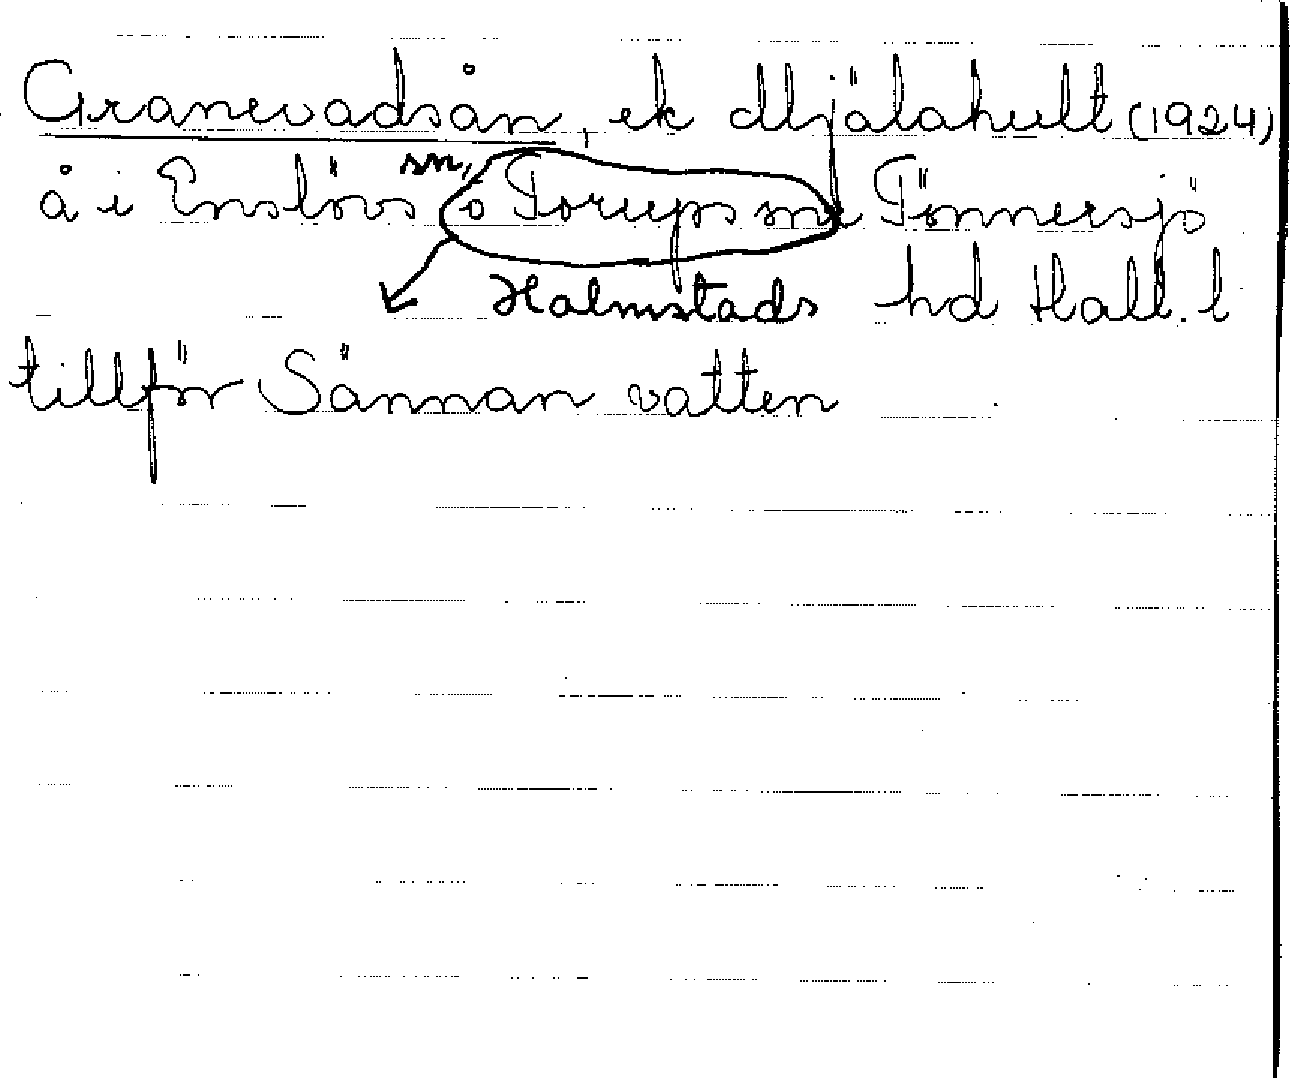 Granevadsån, ek Mjälahult (1924)
å i Enslövs sn, o Torups snr Tönnersjö
Halmstads hd Hall. l
tillför Sännan vatten